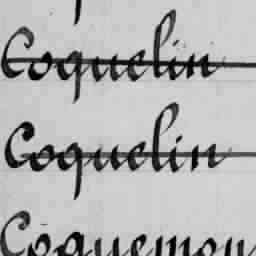 Coquelin
Coquelin
Coquemon